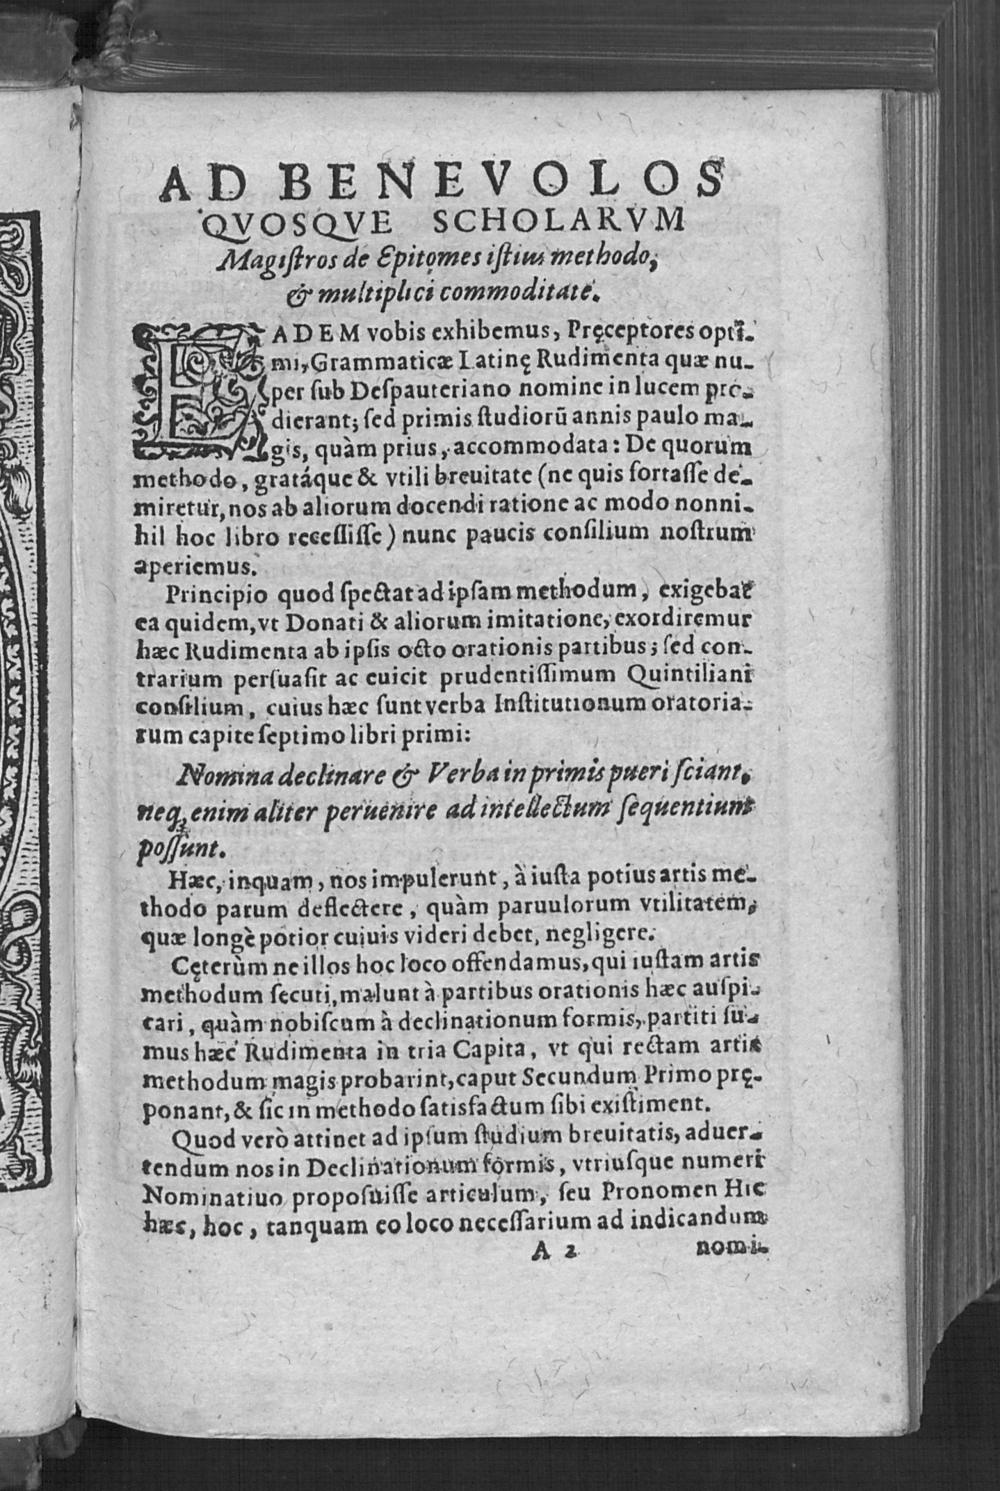 AD BENEVOLOS
QVOSQVE SCHOLARVM
Magistros de Epitomes istius methodo,
& multiplici commoditate.
EADEM vobis exhibemus, Pręceptores opti-
mi, Grammaticæ Latinę Rudimenta quæ nu-
per sub Despauteriano nomine in lucem pro-
dierant; sed primis studiorū annis paulo ma-
gis, quàm prius, accommodata: De quorum
methodo, gratáque & vtili breuitate (ne quis fortasse de-
miretur, nos ab aliorum docendi ratione ac modo nonni-
hil hoc libro recessisse) nunc paucis consilium nostrum
aperiemus.
Principio quod spectat ad ipsam methodum, exigebat
ea quidem, vt Donati & aliorum imitatione, exordiremur
hæc Rudimenta ab ipsis octo orationis partibus; sed con-
trarium persuasit ac euicit prudentissimum Quintiliani
consilium, cuius hæc sunt verba Institutionum oratoria-
rum capite septimo libri primi:
Nomina declinare & Verba in primis pueri sciant,
neq; enim aliter peruenire ad intellectum sequentium
possunt.
Hæc, inquam, nos impulerunt, à iusta potius artis me-
thodo parum deflectere, quàm paruulorum vtilitatem,
quæ longè potior cuiuis videri debet, negligere.
Cęterùm ne illos hoc loco offendamus, qui iustam artis
methodum secuti, malunt à partibus orationis hæc auspi-
cari, quàm nobiscum à declinationum formis, partiti su-
mus hæc Rudimenta in tria Capita, vt qui rectam artis
methodum magis probarint, caput Secundum Primo prę-
ponant, & sic in methodo satisfactum sibi existiment.
Quod verò attinet ad ipsum studium breuitatis, aduer-
tendum nos in Declinationum formis, vtriusque numeri
Nominatiuo proposuisse articulum, seu Pronomen Hic
hæc, hoc, tanquam eo loco necessarium ad indicandum
A 2 nomi-